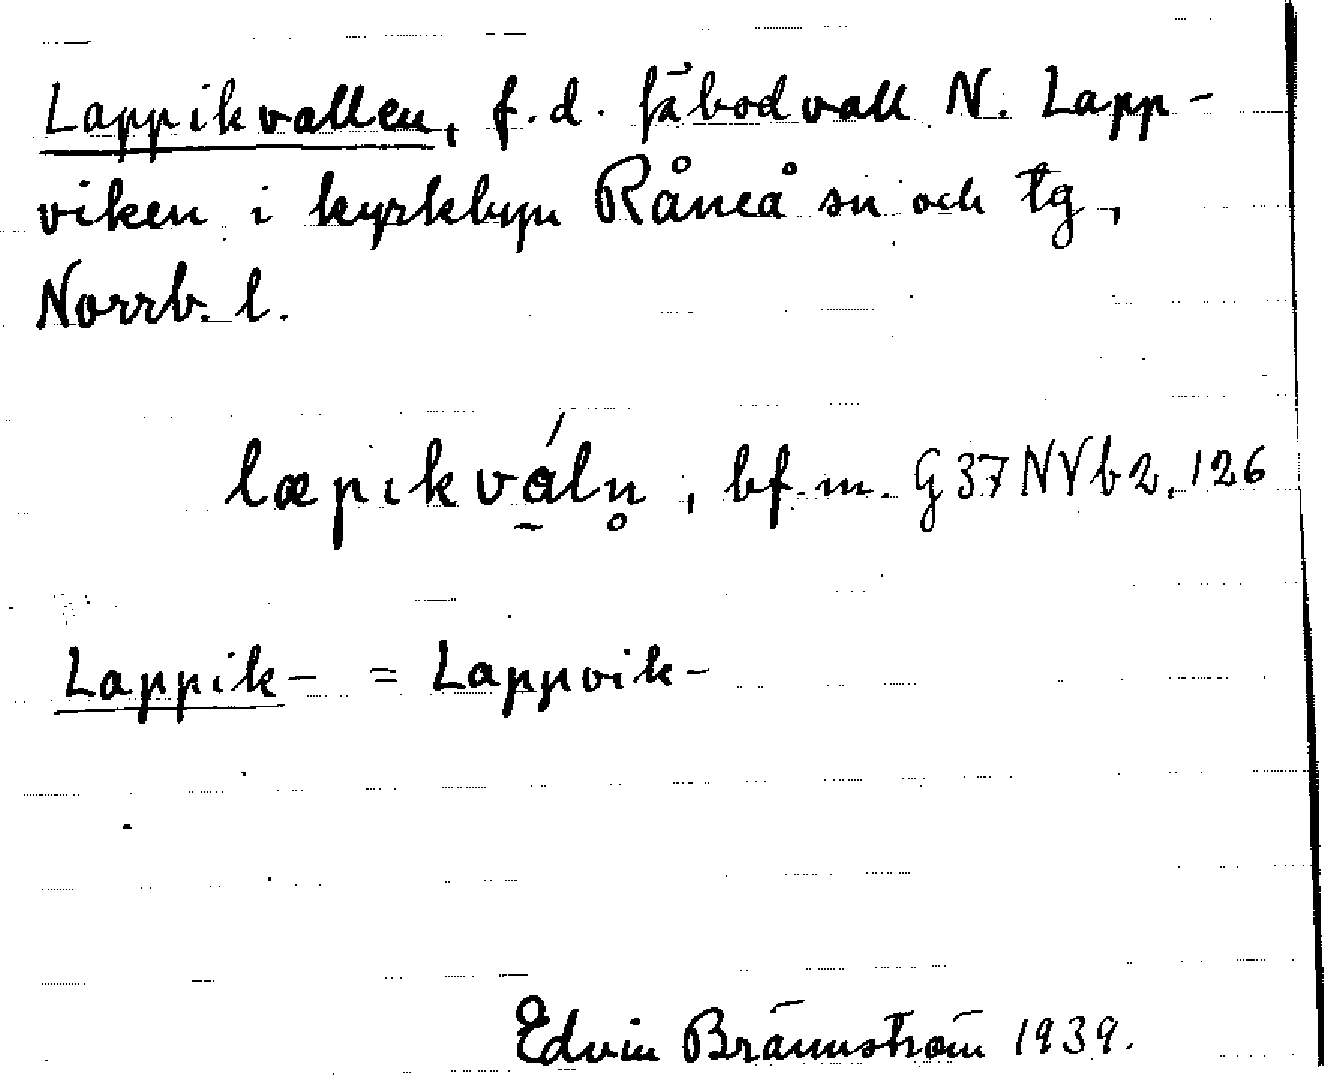 Lappikvallen, f.d. fäbodvall N. Lapp-
viken i kyrkbyn Råneå sn och tg,
Norrb. l.
læpikvá̱ln̥, bf. m. G37NVb2,126
Lappik- = Lappvik-
Edvin Brännström 1939.